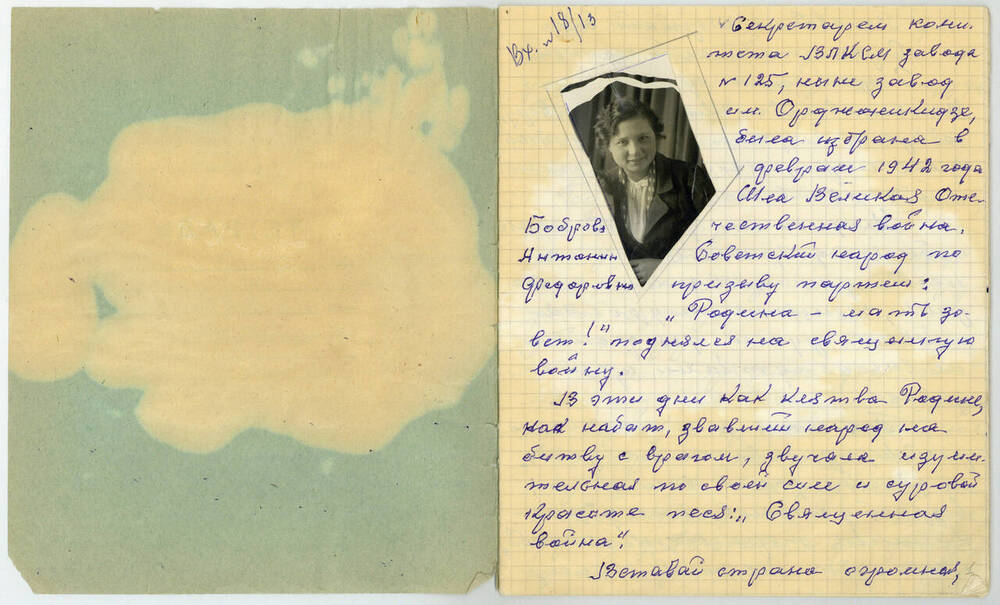 Вх. № 18/13
Секретарем коми-
тета ВЛКСМ завода
№ 125, ныне завод
им. Орджоникидзе,
была избрана в
феврале 1942 года
Шла Великая Оте-
чественная война.
Советский народ по
призыву партии:
Боброва
Антонина
Федоровна
„Родина – мать зо-
вет!" поднялся на священную
войну.
В эти дни как клятва Родине,
как набат, звавший народ на
битву с врагом, звучала изуми-
тельная по своей силе и суровой
красоте песя: „Священная
война".
Вставай страна огромная,